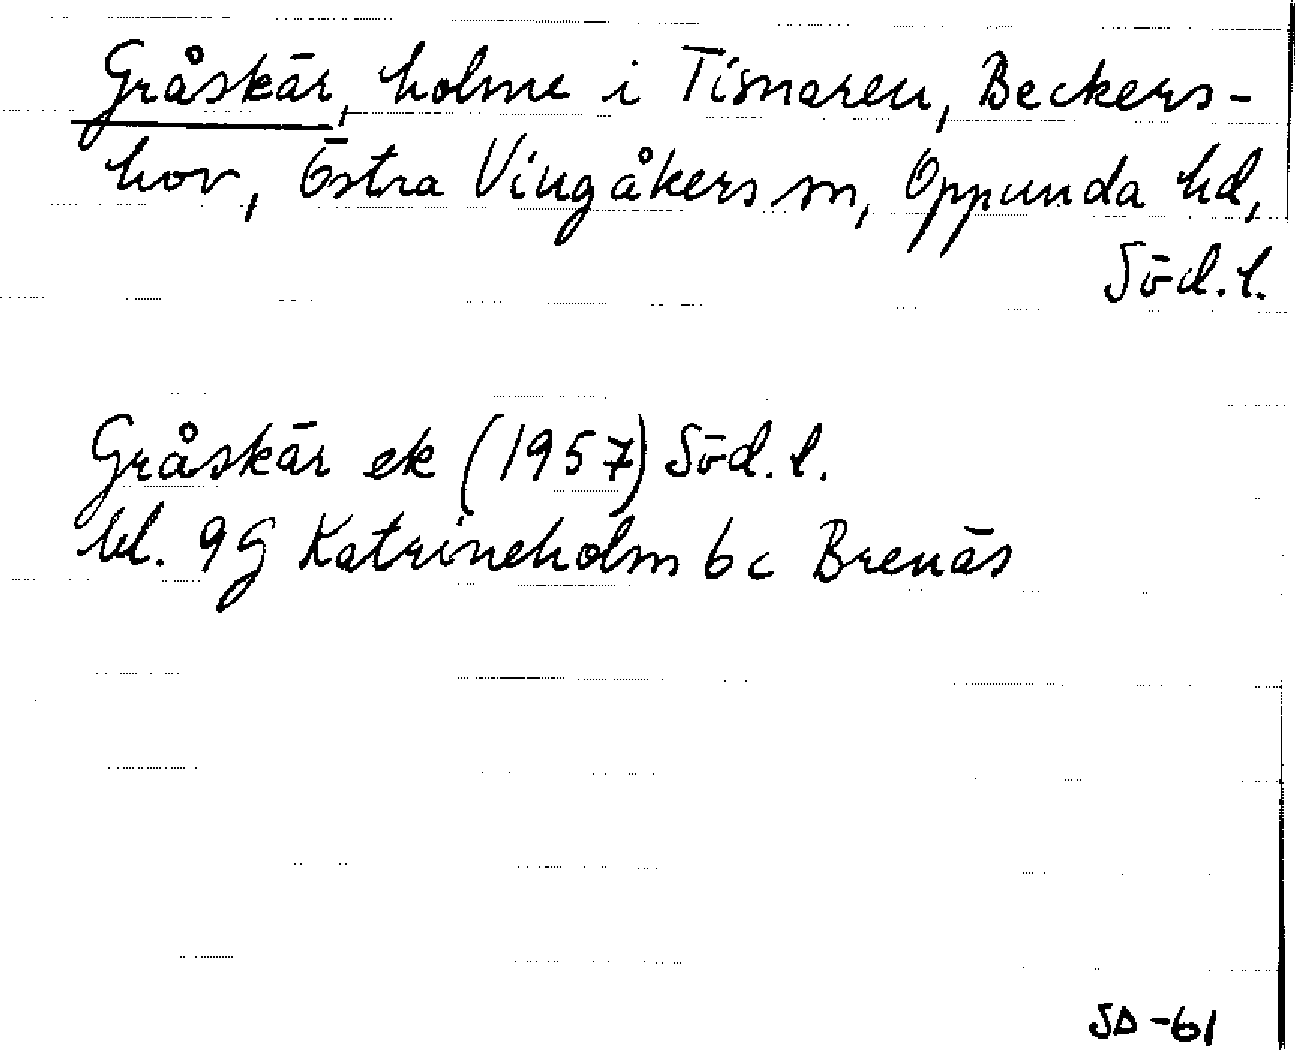 Gråskär, holme i Tisnaren, Beckers-
hov, Östra Vingåkers sn, Oppunda hd,
Söd.l.
Gråskär ek (1957) Söd.l.
bl. 9G Katrineholm 6c Brenäs
SD -61